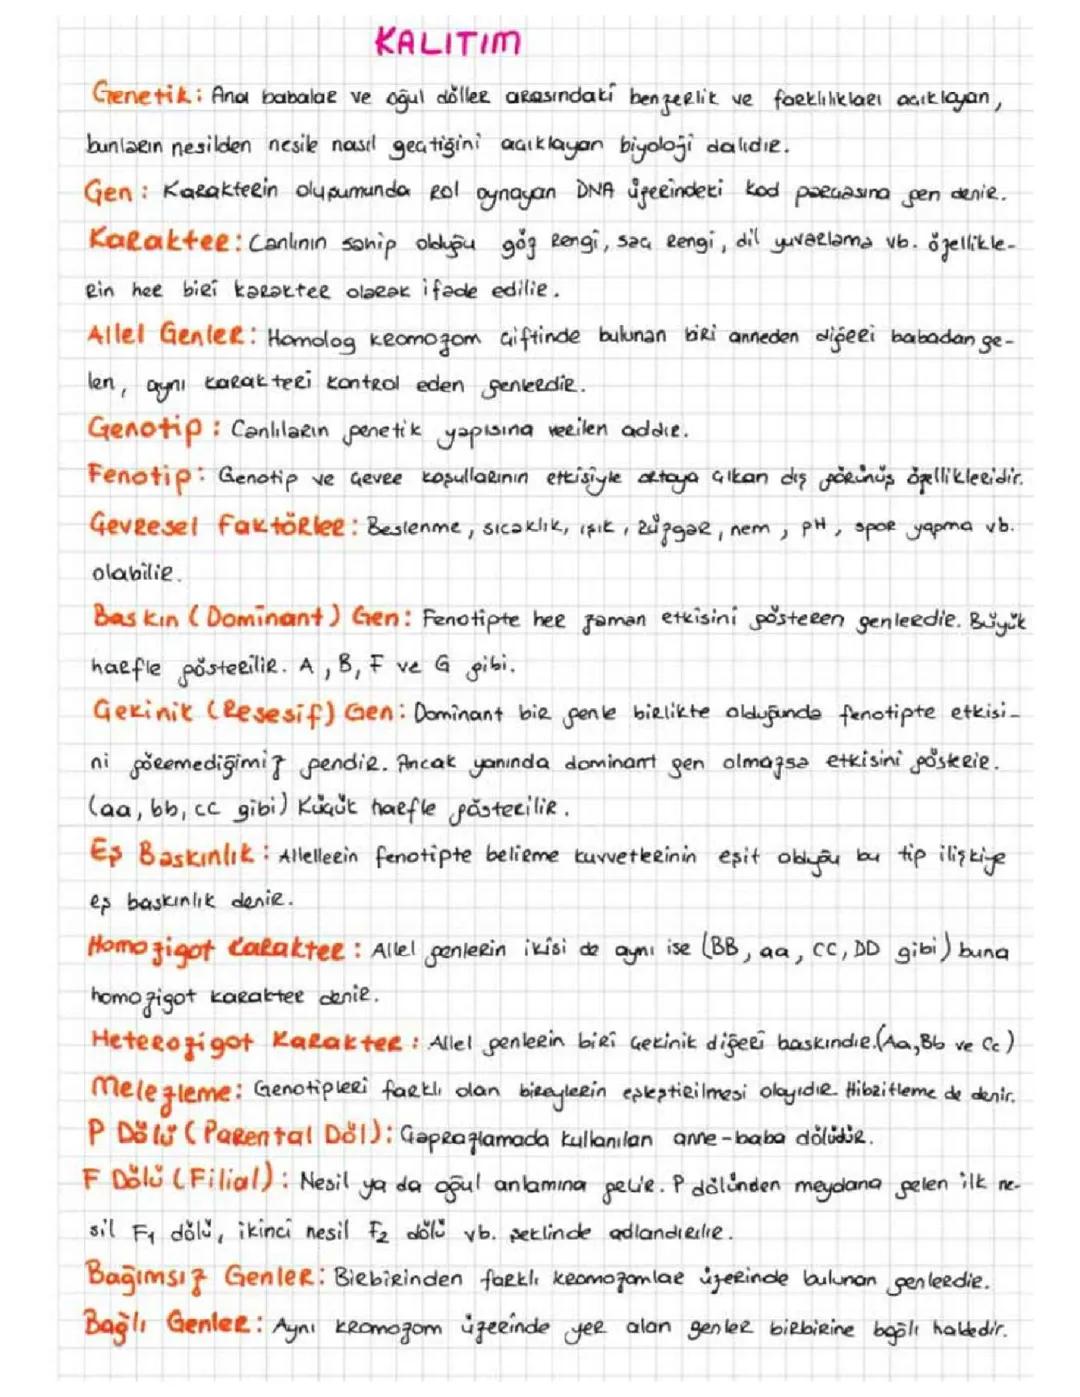 KALITIM
Genetik: Ana babalar ve oğul döller arasındaki benzerlik ve farklılıkları açıklayan,
bunların nesilden nesile nasıl geçtiğini açıklayan biyoloji dalıdır.
Gen: Karakterin oluşumunda rol oynayan DNA üzerindeki kod parçasına gen denir.
Karakter: Canlının sahip olduğu göz rengi, saç rengi, dil yuvarlama vb. özellikle-
rin her biri karakter olarak ifade edilir.
Allel Genler: Homolog kromozom çiftinde bulunan biri anneden diğeri babadan ge-
len, aynı karakteri kontrol eden genlerdir.
Genotip: Canlıların genetik yapısına verilen addır.
Fenotip: Genotip ve çevre koşullarının etkisiyle ortaya çıkan dış görünüş özellikleridir.
Çevresel Faktörler: Beslenme, sıcaklık, ışık, rüzgar, nem, pH, spor yapma vb.
olabilir.
Baskın (Dominant) Gen: Fenotipte her zaman etkisini gösteren genlerdir. Büyük
harfle gösterilir. A, B, F ve G gibi.
Çekinik (Resesif) Gen: Dominant bir genle birlikte olduğunda fenotipte etkisi-
ni göremediğimiz gendir. Ancak yanında dominant gen olmazsa etkisini gösterir.
(aa, bb, cc gibi) Küçük harfle gösterilir.
Eş Baskınlık: Allellerin fenotipte belirme kuvvetlerinin eşit olduğu bu tip ilişkiye
eş baskınlık denir.
Homozigot Karakter: Allel genlerin ikisi de aynı ise (BB, aa, CC, DD gibi) buna
homozigot karakter denir.
Heterozigot Karakter: Allel genlerin biri çekinik diğeri baskındır. (Aa, Bb ve Cc)
Melezleme: Genotipleri farklı olan bireylerin eşleştirilmesi olayıdır. Hibritleme de denir.
P Dölü (Parental Döl): Çaprazlamada kullanılan anne-baba dölüdür.
F Dölü (Filial): Nesil ya da oğul anlamına gelir. P dölünden meydana gelen ilk ne-
sil F1 dölü, ikinci nesil F2 dölü vb. şeklinde adlandırılır.
Bağımsız Genler: Birbirinden farklı kromozomlar üzerinde bulunan genlerdir.
Bağlı Genler: Aynı kromozom üzerinde yer alan genler birbirine bağlı haldedir.